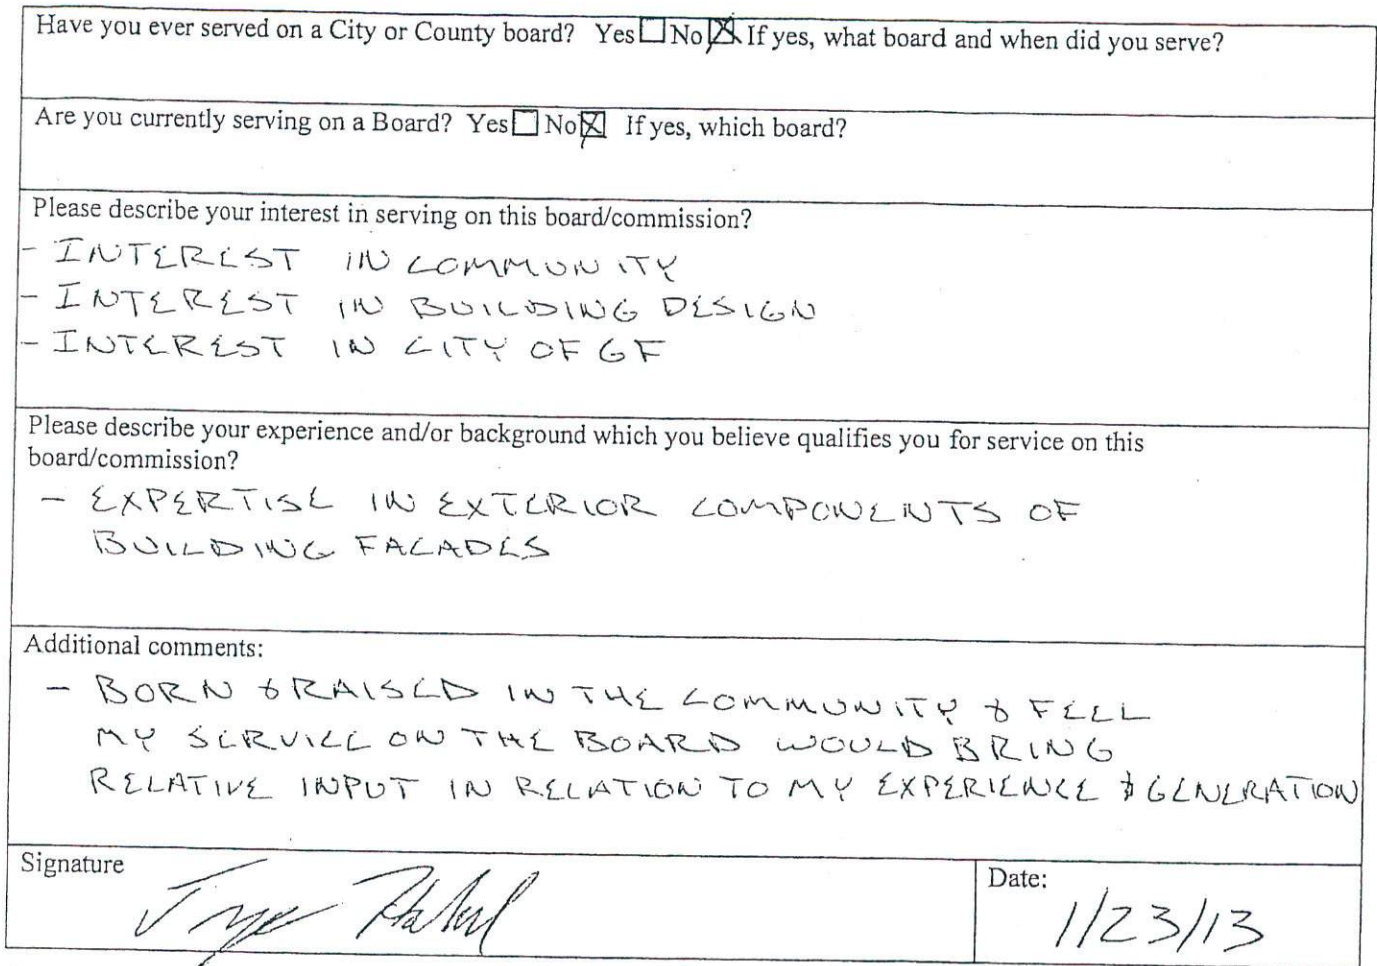 Have you ever served on a City or County board? Yes ☐ No ☒ If yes, what board and when did you serve?
Are you currently serving on a Board? Yes ☐ No ☒ If yes, which board?
Please describe your interest in serving on this board/commission?
- INTEREST IN COMMUNITY
- INTEREST IN BUILDING DESIGN
- INTEREST IN CITY OF GF
Please describe your experience and/or background which you believe qualifies you for service on this
board/commission?
- EXPERTISE IN EXTERIOR COMPONENTS OF
BUILDING FACADES
Additional comments:
- BORN & RAISED IN THE COMMUNITY & FEEL
MY SERVICE ON THE BOARD WOULD BRING
RELATIVE INPUT IN RELATION TO MY EXPERIENCE & GENERATION
Signature
Date:
1/23/13